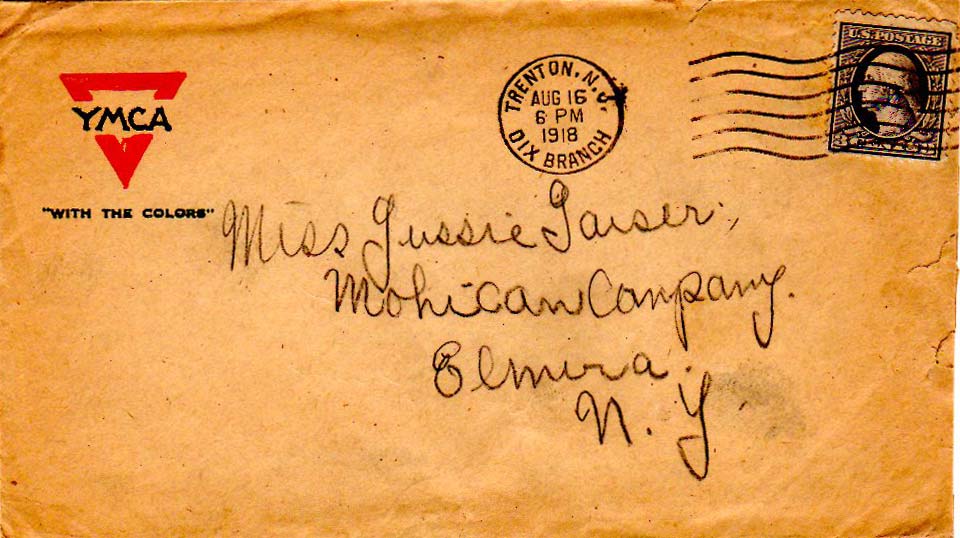 YMCA
"WITH THE COLORS"
TRENTON, N.J.
AUG 16
6 PM
1918
DIX BRANCH
U.S. POSTAGE
Miss Gussie Gaiser,
Mohican Company.
Elmira.
N. Y